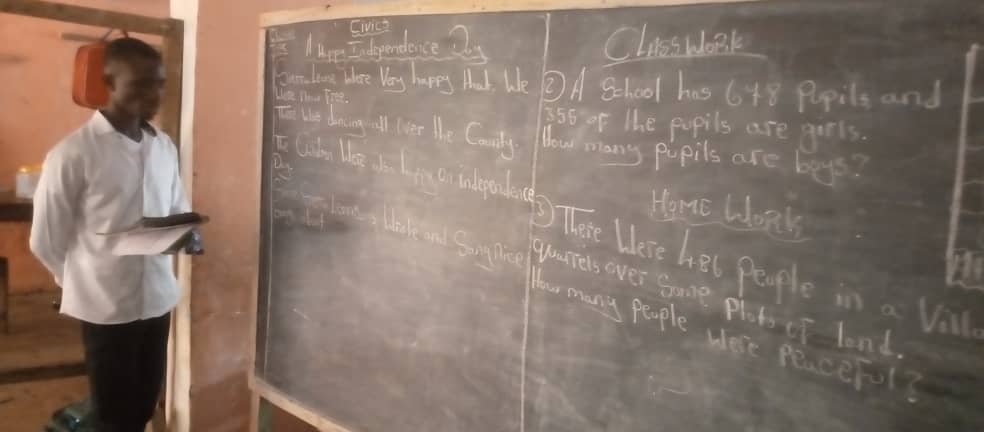 Civics
A Happy Independence Day
Sierra Leone Were Very happy that We
Were Now Free.
There Was dancing all Over the Country.
The Children Were also happy on independence
Day.
Wrote and Sang Nice
CLASS WORK
2) A School has 678 Pupils and
355 of the pupils are girls.
How many pupils are boys?
HOME WORK
3) There Were 486 People in a Villa
quarrels over Some Plots of land.
How many people Were Peaceful?